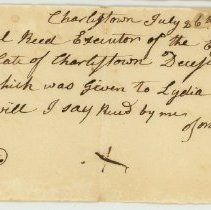 Charlestown July 26
l Reed Executor of the E
Late of Charlestown Deces
which was Given to Lydia
will I say Recd by me